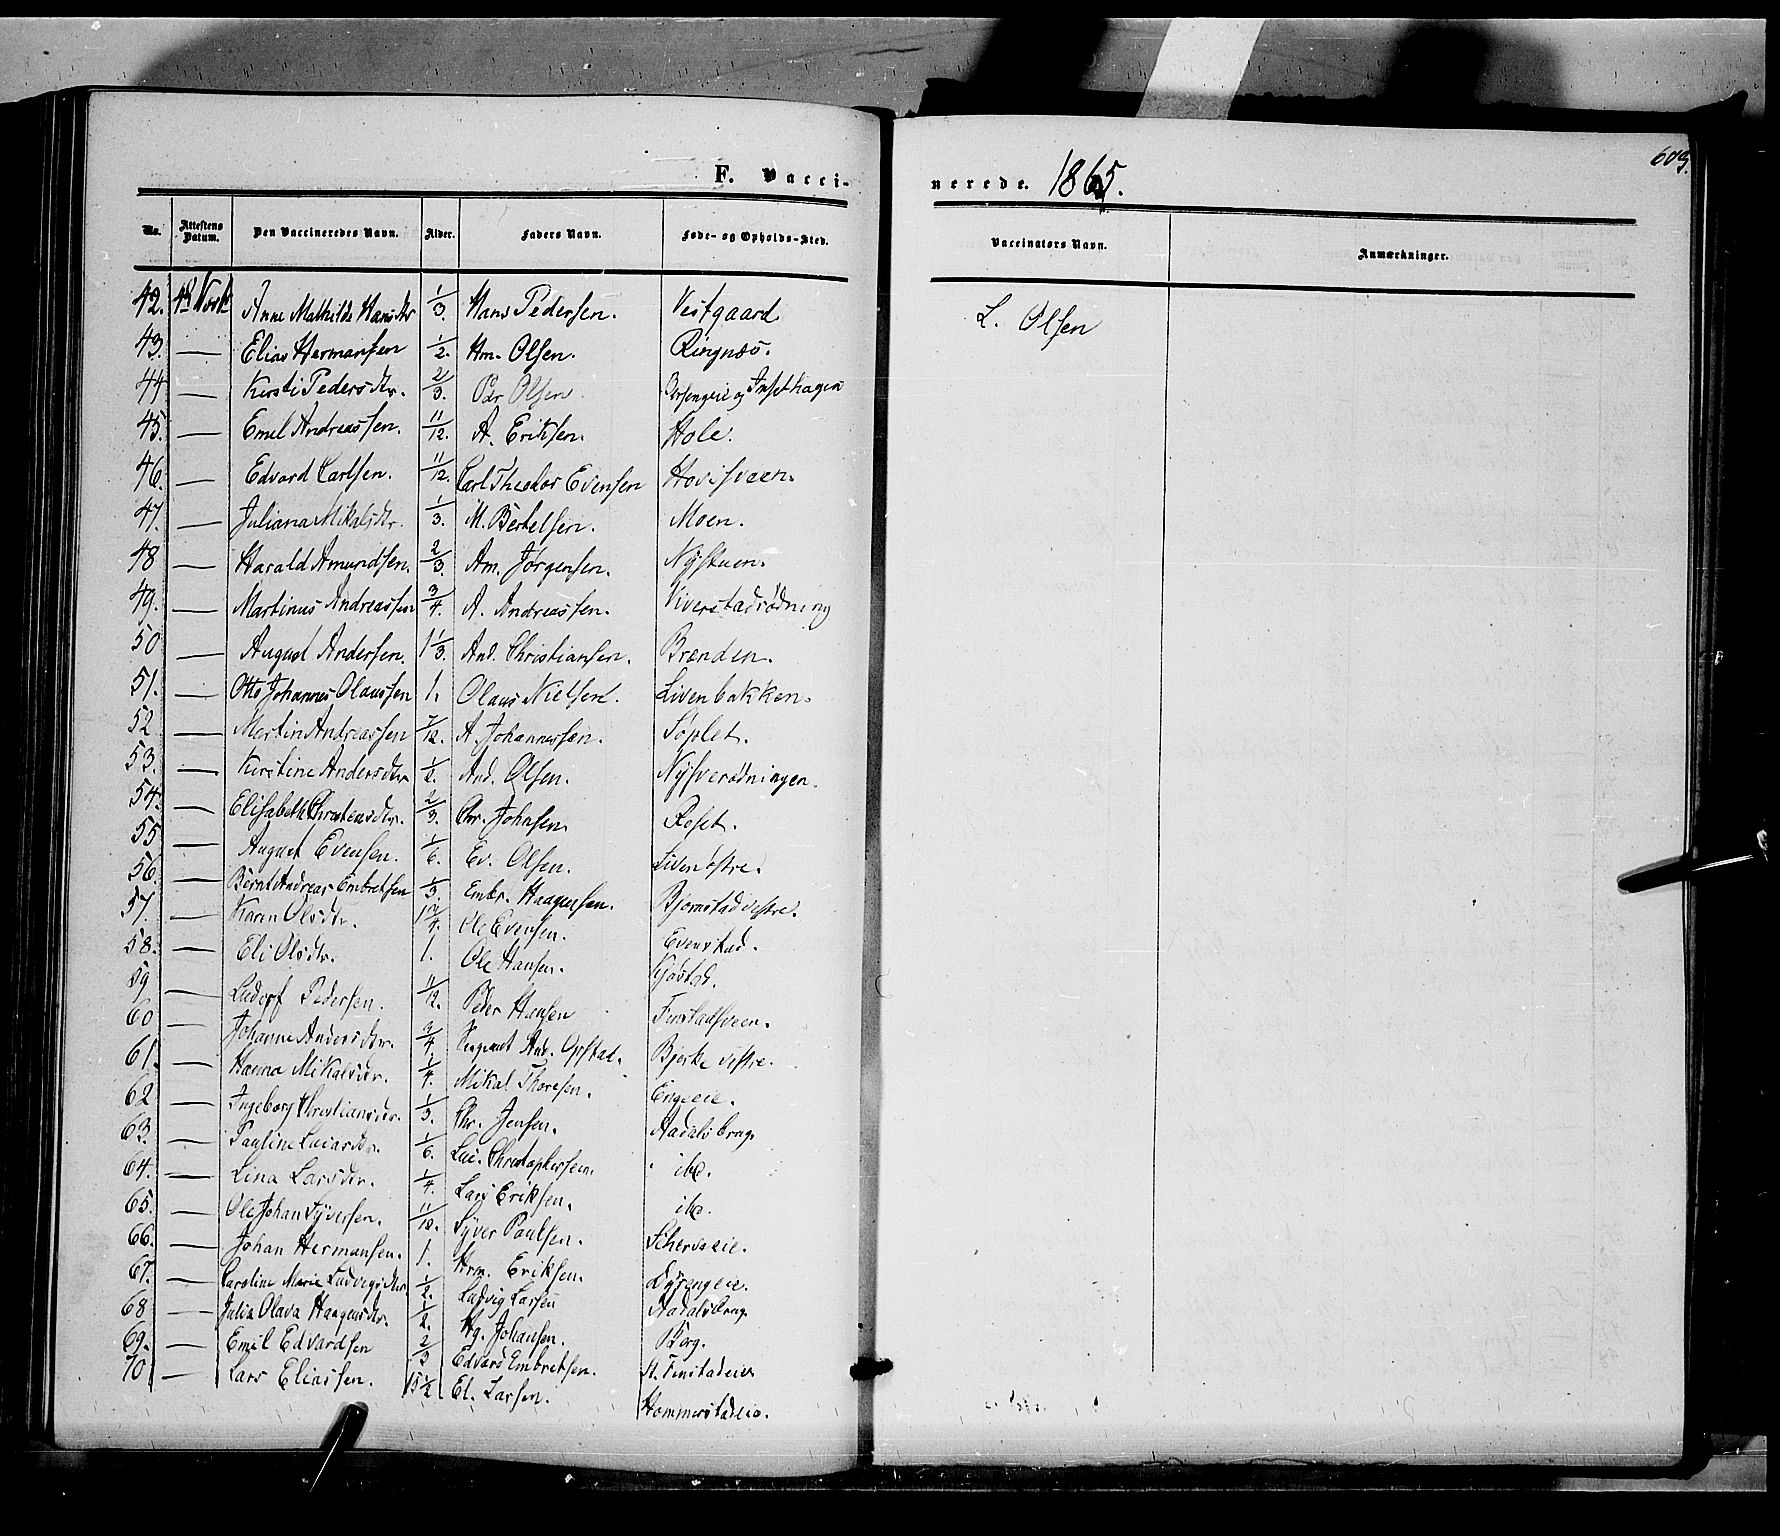 F. Vacci-
nerede. 1865.
609.
No. Attestens Datum. Den Vaccineredes Navn. Alder. Faders Navn. Føde- og Opholds-Sted. Vaccinators Navn. Anmærkninger.
42. Anne Mathilde Hansdtr 1/3. Hans Pedersen. Vestgaard. L. Olsen
43. — Elias Hermansen 1/2. Hm. Olsen. Ringnæs.
44 — Kersti Pedersdtr. 2/3. Pdr Olsen
45. — Emil Andreassen. 11/12. A. Eriksen. Hole.
46. — Edvard Carlsen. 11/12. Carl Theodor Evensen Hovisveen.
47. — Juliana Mikalsdtr. 1/3. M. Bertelsen. Moen.
48 — Harald Amundsen. 2/3. Am. Jørgensen. Nystuen.
49. — Martinus Andreassen 3/4. A. Andreassen. Viverstadrødning
50 — August Andersen. 1 1/3. And. Christiansen. Brænden.
51. — Otto Johannes Olaussen 1. Olaus Nielsen. Livenbakken.
52 — Martin Andreassen 7/12. A. Johannessen. Søplet.
53. — Kerstine Andersdtr 1/2. And. Olsen. Nysverødningen.
54. — Elisabeth Christensdtr. 2/3. Chr. Johnsen. Roset.
55 — August Evensen. 1/6. Ev. Olsen. Liven østre.
56 — Bernt Andreas Embretsen 1/3. Embr. Haagensen. Bjørnstad vestre.
57. — Karen Olsdtr. 1 3/4. Ole Evensen. Evenstad.
58. — Eli Olsdtr. 1. Ole Hansen. Kjøstad.
59 — Ludvig Pedersen. 11/12. Peder Hansen Finstadsveen.
60 — Johanne Andersdtr. 3/4. Sergeant And. Opstad. Bjørke vestre.
61. — Hanna Mikalsdtr. 1/4. Mikal Thoresen. Engeeie.
62 — Ingeborg Christiansdtr. 1/3. Chr. Jensen. Aadalsbrug
63. — Pauline Lucasdtr. 1/6. Luc. Christophersen. ibd.
64. — Lina Larsdtr. 1/4. Lars Eriksen. ibd.
65. — Ole Johan Syversen. 11/12. Syver Paulsen.
66. — Johan Hermansen. 1. Hrm. Eriksen. Dyrengeie.
67. — Caroline Marie Ludvigsdtr. 1/2. Ludvig Larsen Aadalsbrug.
68 — Julia Olava Haagensdtr. 1/2. Hg. Johansen. Borg.
69. — Emil Edvardsen 2/3 Edvard Embretsen. N. Finstadeie
70 — Lars Eliassen. 15 1/2 El. Larsen. Hommerstadeie.